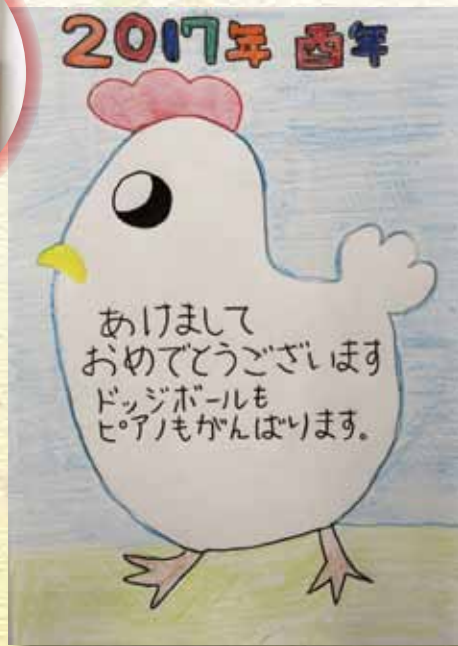 2017年 酉年
あけまして
おめでとうございます
ドッジボールも
ピアノもがんばります。